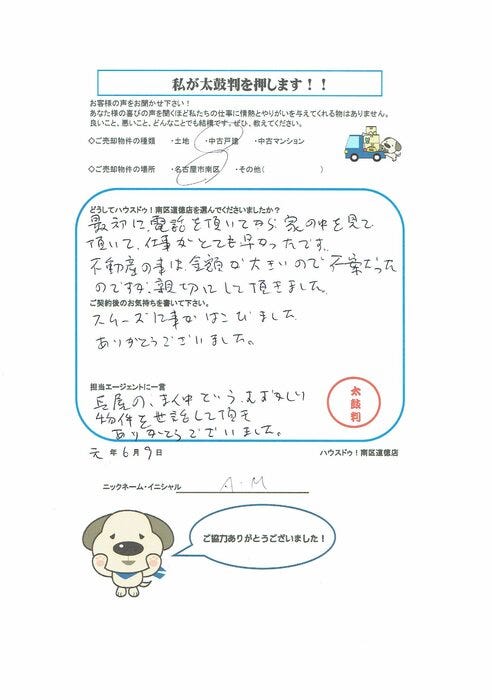 私が太鼓判を押します！！
お客様の声をお聞かせ下さい！
あなた様の喜びの声を聞くほど私たちの仕事に情熱とやりがいを与えてくれる物はありません。
良いこと、悪いこと、どんなことでも結構です。ぜひ、教えてください。
◇ご売却物件の種類 ・土地 ・中古戸建 ・中古マンション
◇ご売却物件の場所 ・名古屋市南区 ・その他( )
どうしてハウスドゥ！南区道徳店を選んでくださいましたか？
最初に、電話を頂いてから家の中を見て
頂いて、仕事がとても早かったです。
不動産の事は、金額が大きいので不安だった
のですが、親切にして頂きました。
ご契約後のお気持ちを書いて下さい。
スムーズに事がはこびました
ありがとうございました。
担当エージェントに一言
長屋の、まん中という、むずかしい
物件を世話して頂き
ありがとうございました。
太鼓判
元年6月9日 ハウスドゥ！南区道徳店
ニックネーム・イニシャル A・M
ご協力ありがとうございました！